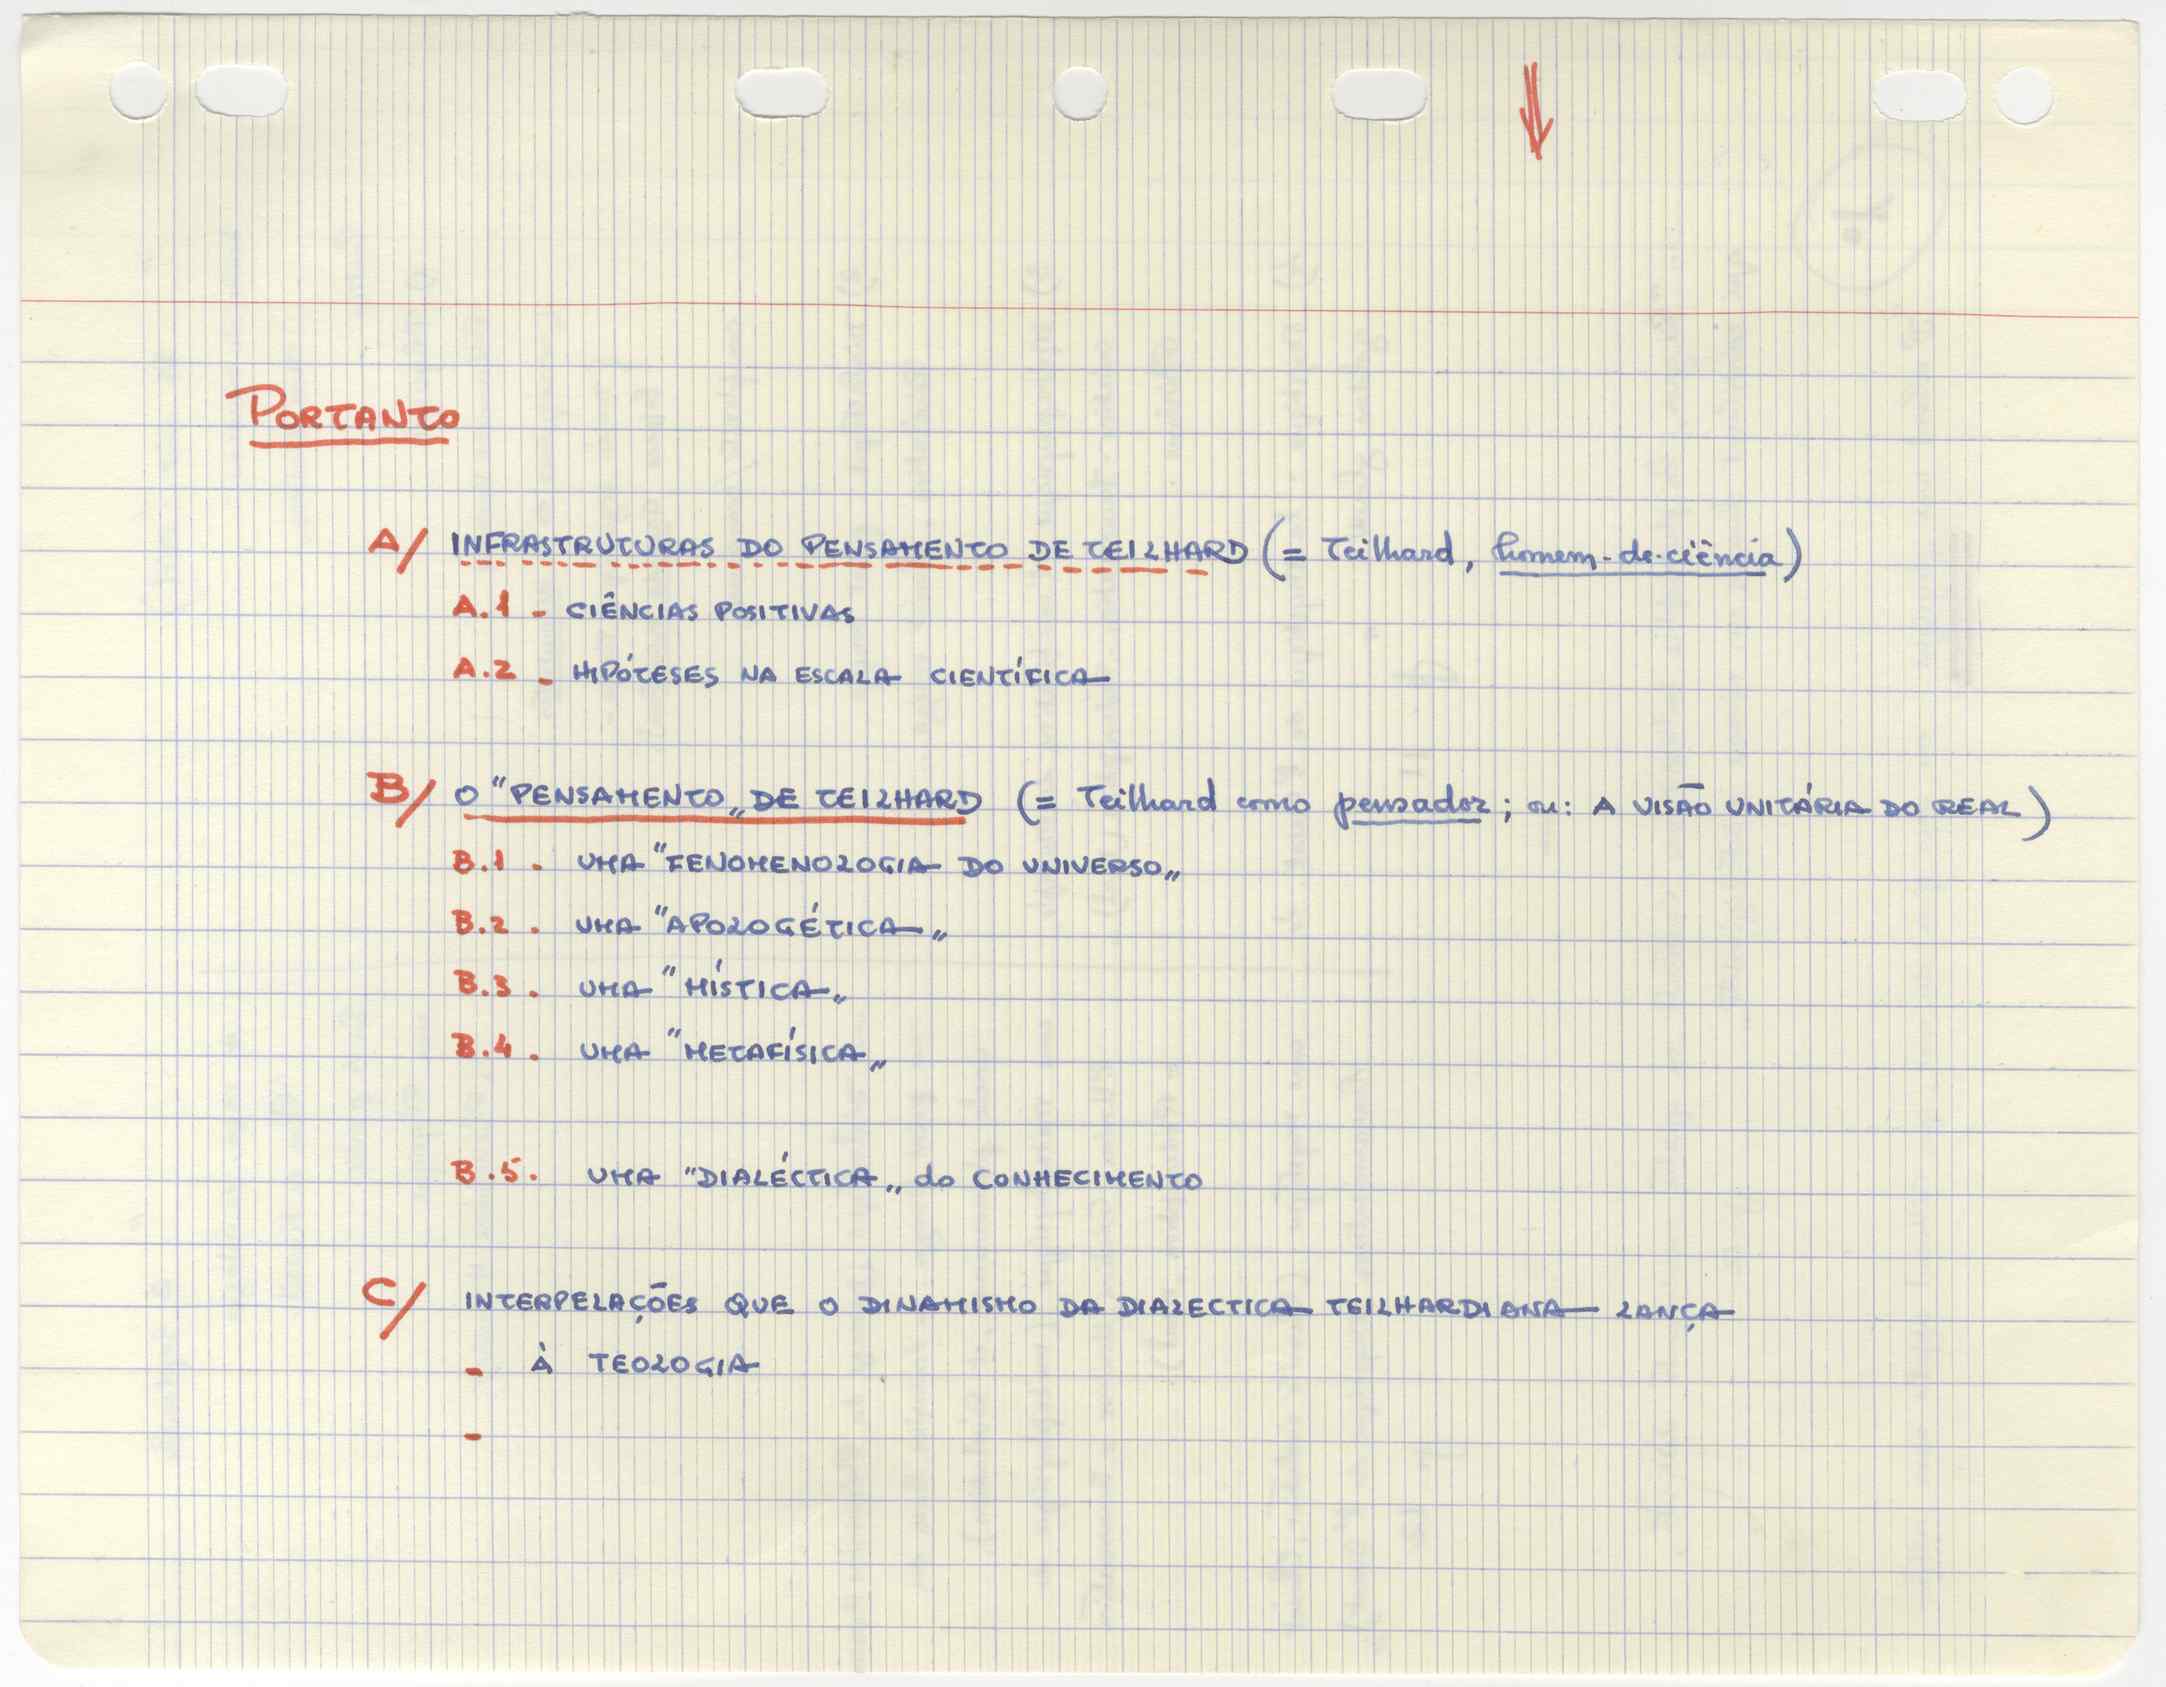 PORTANTO
A/ INFRASTRUTURAS DO PENSAMENTO DE TEILHARD (= Teilhard, homem-de-ciência)
A.1 - CIÊNCIAS POSITIVAS
A.2 - HIPÓTESES NA ESCALA CIENTÍFICA
B/ O "PENSAMENTO„ DE TEILHARD (= Teilhard como pensador; ou: A VISÃO UNITÁRIA DO REAL)
B.1. UMA "FENOMENOLOGIA DO UNIVERSO„
B.2. UMA "APOLOGÉTICA„
B.3. UMA "MÍSTICA„
B.4. UMA "METAFÍSICA„
B.5. UMA "DIALÉCTICA„ do CONHECIMENTO
C/ INTERPELAÇÕES QUE O DINAMISMO DA DIALECTICA TEILHARDIANA LANÇA
- À TEOLOGIA
-